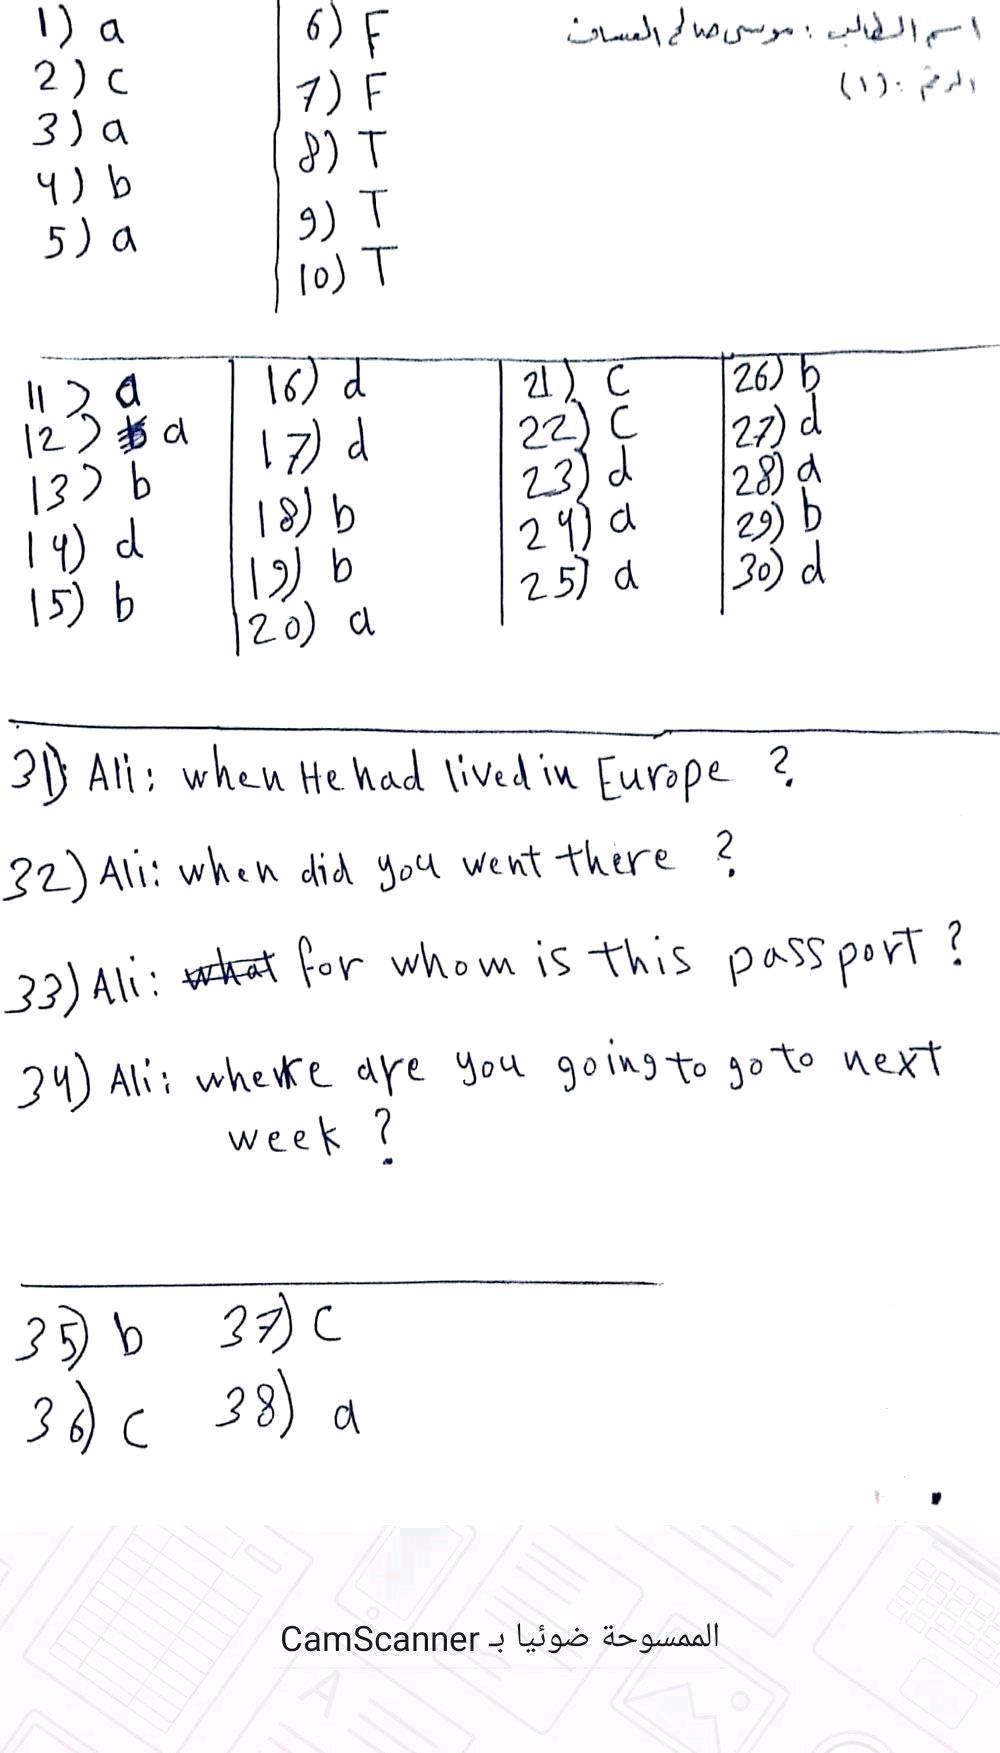 اسم الطالب : موسى صالح العساف
الرقم : (١)
1) a
2) c
3) a
4) b
5) a
6) F
7) F
8) T
9) T
10) T
11) a
12) a
13) b
14) d
15) b
16) d
17) d
18) b
19) b
20) a
21) c
22) c
23) d
24) a
25) a
26) b
27) d
28) a
29) b
30) d
31) Ali: when He had lived in Europe ?
32) Ali: when did you went there ?
33) Ali: what for whom is this passport ?
34) Ali: where are you going to go to next
week ?
35) b
36) c
37) c
38) a
الممسوحة ضوئيا بـ CamScanner